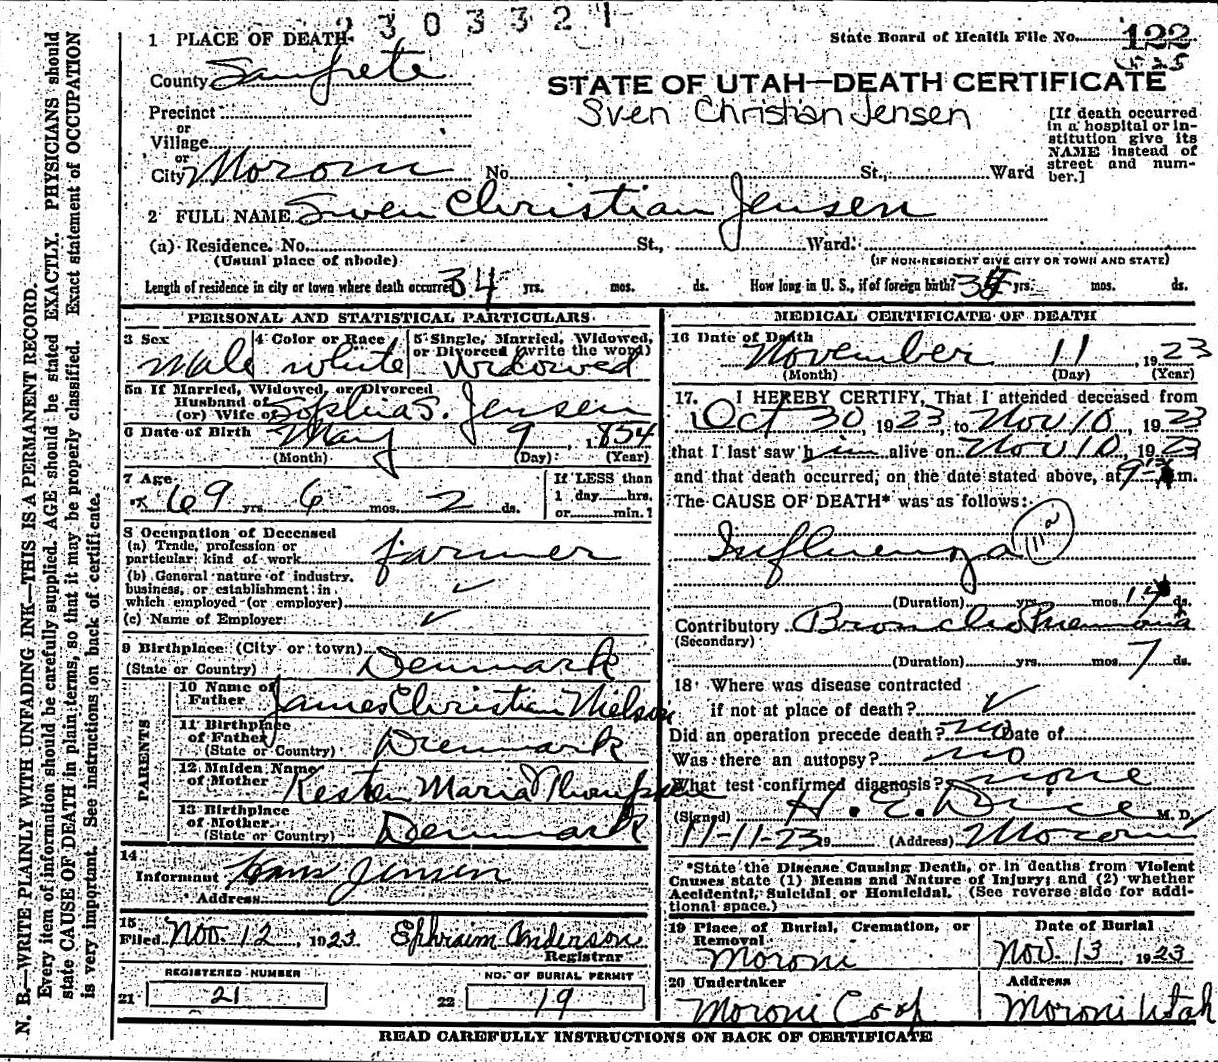 230332 1
1 PLACE OF DEATH
State Board of Health File No. 122
525
County Sanpete
STATE OF UTAH—DEATH CERTIFICATE
Sven Christian Jensen
Precinct
or
Village
or
City Moroni No. St., Ward
[If death occurred in a hospital or institution give its NAME instead of street and number.]
2 FULL NAME Sven Christian Jensen
(a) Residence. No. St., Ward.
(Usual place of abode) (IF NON-RESIDENT GIVE CITY OR TOWN AND STATE)
Length of residence in city or town where death occurred 34 yrs. mos. ds. How long in U. S., if of foreign birth? yrs. mos. ds.
PERSONAL AND STATISTICAL PARTICULARS
3 Sex 4 Color or Race 5 Single, Married, Widowed, or Divorced (write the word)
Male white Widowed
5a If Married, Widowed, or Divorced
Husband of
(or) Wife of Sophia S. Jensen
6 Date of Birth May 9, 1854
(Month) (Day) (Year)
7 Age 69 yrs. 6 mos. 2 ds.
If LESS than
1 day hrs.
or min.?
8 Occupation of Deceased
(a) Trade, profession or
particular kind of work farmer
(b) General nature of industry,
business, or establishment in
which employed (or employer) ✓
(c) Name of Employer ✓
9 Birthplace (City or town)
(State or Country) Denmark
PARENTS
10 Name of
Father James Christian Nielson
11 Birthplace
of Father
(State or Country) Denmark
12 Maiden Name
of Mother Kesten Maria
13 Birthplace
of Mother
(State or Country) Denmark
14
Informant Hans Jensen
Address
15
Filed Nov. 12, 1923 Ephraim Anderson
Registrar
REGISTERED NUMBER NO. OF BURIAL PERMIT
21 21 22 19
MEDICAL CERTIFICATE OF DEATH
16 Date of Death
November 11, 1923
(Month) (Day) (Year)
17. I HEREBY CERTIFY, That I attended deceased from
Oct 30, 1923, to Nov 10, 1923
that I last saw him alive on Nov 10, 1923
and that death occurred, on the date stated above, at 9 m.
The CAUSE OF DEATH* was as follows:
Influenza 11a
(Duration) yrs. mos. ds.
Contributory Broncho Pneumonia
(Secondary)
(Duration) yrs. mos. 7 ds.
18 Where was disease contracted
if not at place of death? ✓
Did an operation precede death? no Date of
Was there an autopsy? no
What test confirmed diagnosis? none
(Signed) H. E. Dice M. D.
11-11-23 19 (Address) Moroni
*State the Disease Causing Death, or in deaths from Violent
Causes state (1) Means and Nature of Injury; and (2) whether
Accidental, Suicidal or Homicidal. (See reverse side for addi-
tional space.)
19 Place of Burial, Cremation, or Removal Date of Burial
Moroni Nov. 13 1923
20 Undertaker Address
Moroni Co-op Moroni Utah
READ CAREFULLY INSTRUCTIONS ON BACK OF CERTIFICATE
N. B.—WRITE PLAINLY WITH UNFADING INK—THIS IS A PERMANENT RECORD.
Every item of information should be carefully supplied. AGE should be stated EXACTLY. PHYSICIANS should
state CAUSE OF DEATH in plain terms, so that it may be properly classified. Exact statement of OCCUPATION
is very important. See instructions on back of certificate.